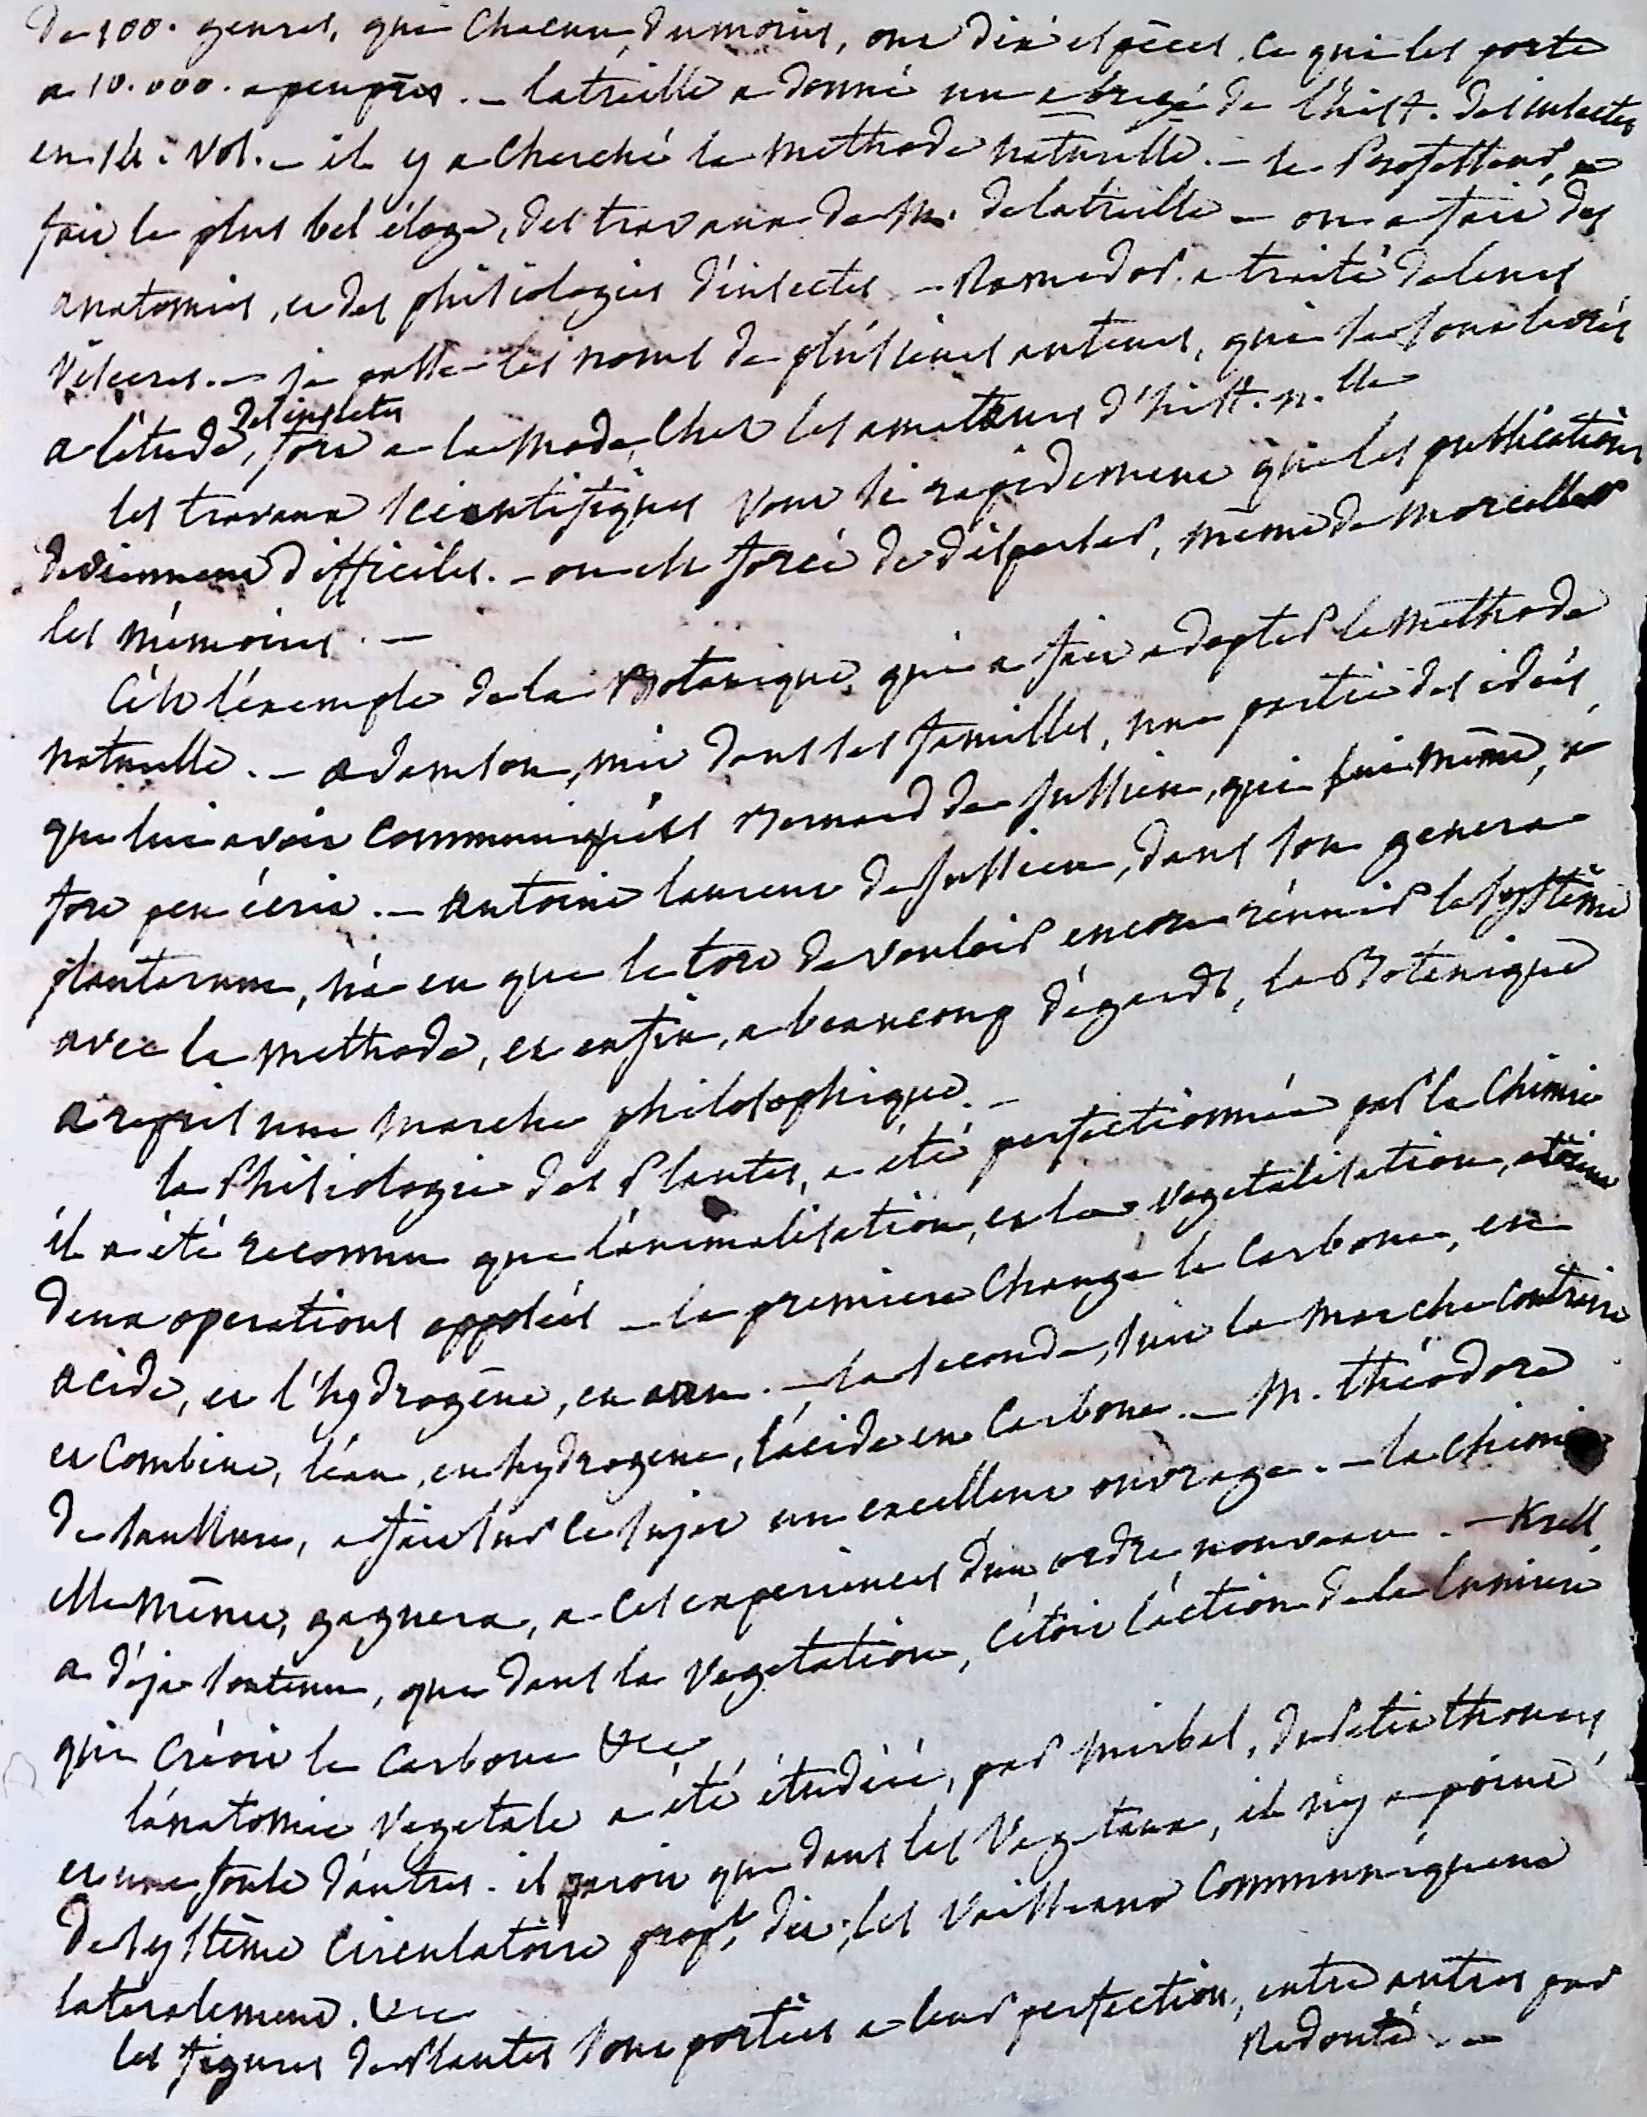 de 100. genres, qui chacun, dumoins, ont dix espèces. ce qui les porte
a 10.000. apeuprès. — latreille a donné un abregé de l'hist. des insectes
en 14. vol. — il y a cherché la methode naturelle. — le Professeur, a
fait le plus bel éloge, des travaux de M. delatreille — on a fait des
anatomies, et des phisiologies d'insectes. — Ramedor a traité de leurs
viscères. — je passe les noms de plusieurs auteurs, qui se sont livrés
a l'étude des insectes, fort a la mode, chez les amateurs d'hist. n.lle
les travaux scientifiques vont si rapidement que les publications
deviennent difficiles. — on est forcé de disperser, même de morceller
les mémoires. —
C'est l'exemple de la Botanique, qui a fait adopter la methode
naturelle. — adamson, mit dans ses familles, une partie des idées
que lui avoit communiquées Bernard de Jussieu, qui lui même, a
fort peu écrit. — antoine laurent de Jussieu, dans son genera
plantarum, n'a eu que le tort de vouloir encore réunir le systême
avec la methode, et enfin, a beaucoup d'égards, la Botanique
a repris une marche philosophique. —
la Phisiologie des Plantes, a été perfectionnée par la Chimie
il a été reconnu que l'animalisation, et la vegetalisation, étoient
deux operations opposées — la premiere change le carbone, en
acide, et l'hydrogène, en eau. — la seconde, suit la marche contraire
et combine, l'eau, en hydrogene, l'acide en carbone. — M. théodore
de saussure, a fait sur ce sujet un excellent ouvrage. — la chimie
elle même, gagnera, a ces experiences d'un ordre nouveau. — Krell
a déja soutenu, que dans la vegetation, c'étoit l'action de la lumiere
qui créoit le carbone &ca
l'anatomie vegetale a été étudiée, par Mirbel, du Petit thouars
et une foule d'autres. il paroit que dans les vegetaux, il n'y a point
de systême circulatoire propt. dit; les vaisseaux communiquent
lateralement. &ca
les figures de Plantes sont portées a leur perfection, entre autres par
Redouté. —